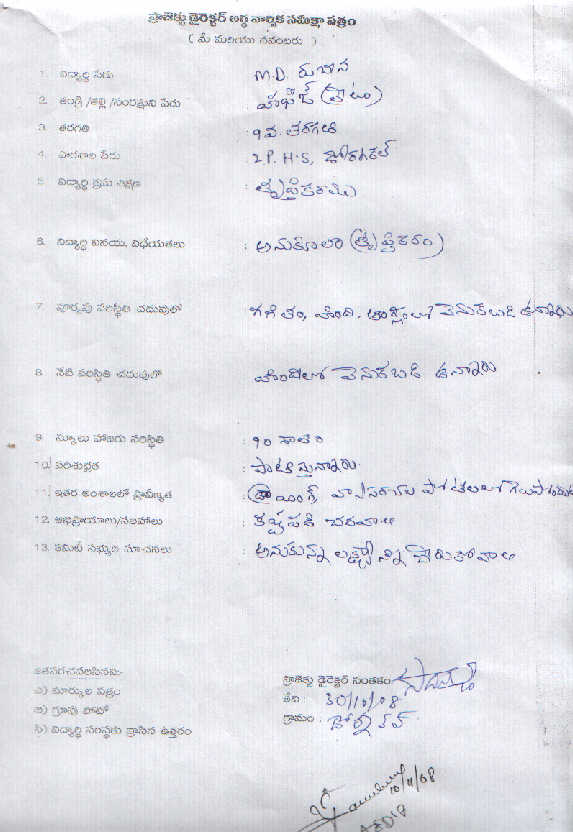 ప్రాజెక్టు డైరెక్టర్ అర్ధ వార్షిక సమీక్షా పత్రం
( మే మరియు నవంబరు )
1. విద్యార్థి పేరు M.D. రుబీన
2. తండ్రి /తల్లి /సంరక్షకుని పేరు : హఫీజ్
3. తరగతి : 9వ. తరగతి
4. పాఠశాల పేరు : Z.P.H.S,
5. విద్యార్థి క్రమ శిక్షణ : తృప్తికరము
6. విద్యార్థి వినయ, విధేయతలు : అనుకూలం (తృప్తికరం)
7. పూర్వపు పరిస్థితి చదువులో గణితం, హింది, ఆంగ్లంలో వెనుకబడి ఉన్నారు
8. నేటి పరిస్థితి చదువులో హిందీలో వెనుకబడి ఉన్నారు
9. స్కూలు హాజరు పరిస్థితి : 90 శాతం
10. పరిశుభ్రత : పాటిస్తున్నారు
11. ఇతర అంశాలలో ప్రావీణ్యత : డ్రాయింగ్, వ్యాసరచన పోటీలలో
12. అభిప్రాయాలు/సలహాలు : కష్టపడి చదవాలి
13. కమిటి సభ్యుల సూచనలు : అనుకున్న లక్ష్యాన్ని చేరుకోవాలి
జతపరచవలసినవి
ఎ) మార్కుల పత్రం
బి) గ్రూపు ఫోటో
సి) విద్యార్థి సంస్థకు వ్రాసిన ఉత్తరం
ప్రాజెక్టు డైరెక్టర్ సంతకం
తేది : 30/10/08
గ్రామం :
10/11/08